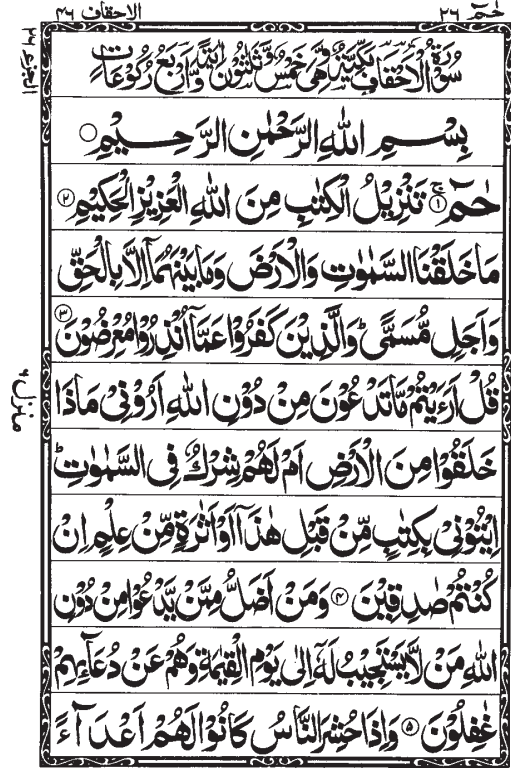 حٰمٓ ٢٦
الاحقاف ٤٦
سُوْرَةُ الْاَحْقَافِ مَكِّيَّةٌ وَّهِیَ خَمْسٌ وَّثَلٰثُوْنَ اٰیَةً وَّاَرْبَعُ رُكُوْعَاتٍ
بِسْمِ اللّٰهِ الرَّحْمٰنِ الرَّحِیْمِ ○
حٰمٓ ۚ﴿۱﴾ تَنْزِیْلُ الْكِتٰبِ مِنَ اللّٰهِ الْعَزِیْزِ الْحَكِیْمِ ﴿۲﴾
مَا خَلَقْنَا السَّمٰوٰتِ وَالْاَرْضَ وَمَا بَیْنَهُمَاۤ اِلَّا بِالْحَقِّ
وَاَجَلٍ مُّسَمًّی ؕ وَالَّذِیْنَ كَفَرُوْا عَمَّاۤ اُنْذِرُوْا مُعْرِضُوْنَ ﴿۳﴾
قُلْ اَرَءَیْتُمْ مَّا تَدْعُوْنَ مِنْ دُوْنِ اللّٰهِ اَرُوْنِیْ مَاذَا
خَلَقُوْا مِنَ الْاَرْضِ اَمْ لَهُمْ شِرْكٌ فِی السَّمٰوٰتِ ؕ
اِیْتُوْنِیْ بِكِتٰبٍ مِّنْ قَبْلِ هٰذَاۤ اَوْ اَثٰرَةٍ مِّنْ عِلْمٍ اِنْ
كُنْتُمْ صٰدِقِیْنَ ﴿۴﴾ وَمَنْ اَضَلُّ مِمَّنْ یَّدْعُوْا مِنْ دُوْنِ
اللّٰهِ مَنْ لَّا یَسْتَجِیْبُ لَهٗۤ اِلٰی یَوْمِ الْقِیٰمَةِ وَهُمْ عَنْ دُعَآئِهِمْ
غٰفِلُوْنَ ﴿۵﴾ وَاِذَا حُشِرَ النَّاسُ كَانُوْا لَهُمْ اَعْدَآءً
الجزء ٢٦
منزل ٦